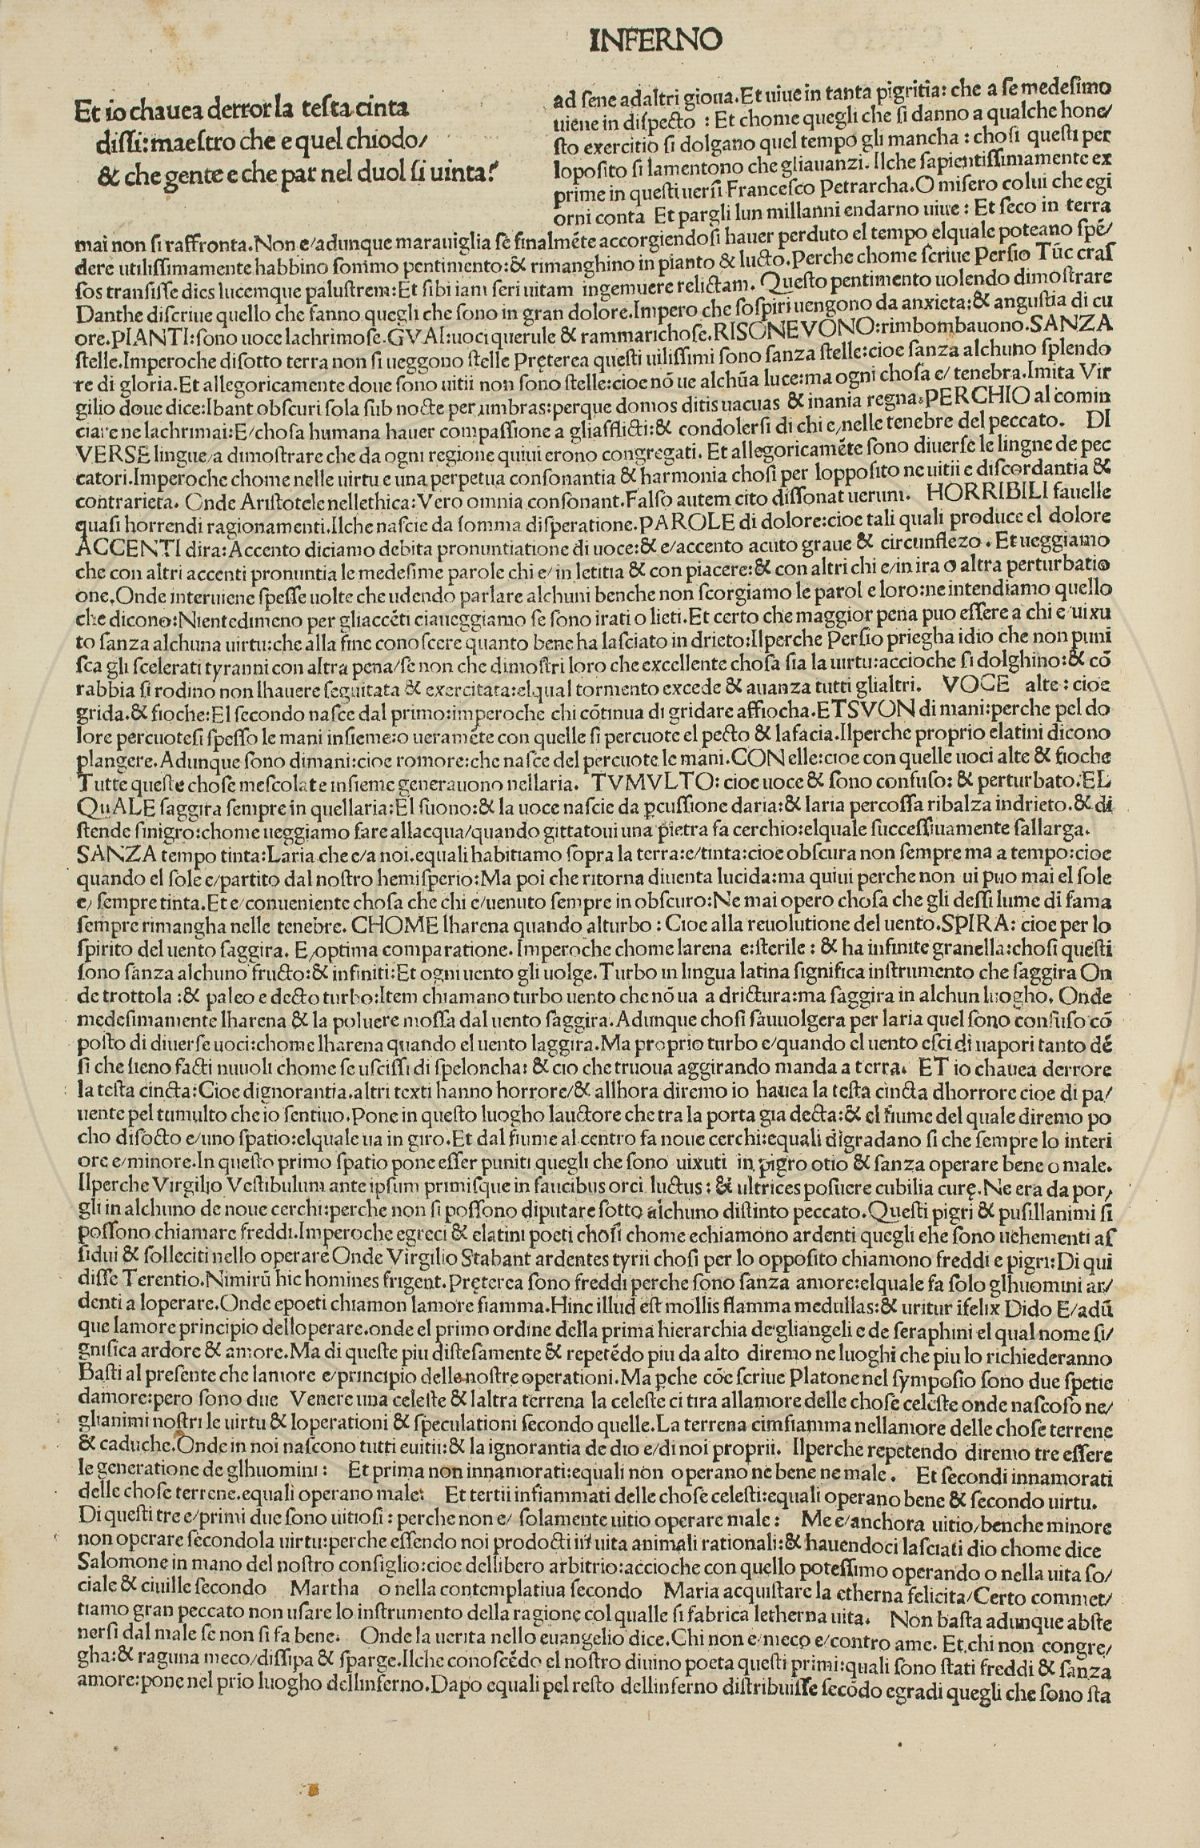 INFERNO
Et io chauea derror la testa cinta
dissi: maestro che e quel chiodo/
& che gente e che par nel duol si uinta?
ad sene adaltri gioua. Et uiue in tanta pigritia: che a se medesimo
uiene in dispecto : Et chome quegli che si danno a qualche hone/
sto exercitio si dolgano quel tempo gli mancha : chosi questi per
loposito si lamentono che gliauanzi. Ilche sapientissimamente ex
prime in questi uersi Francesco Petrarcha. O misero colui che egi
orni conta Et pargli lun millanni endarno uiue : Et seco in terra
mai non si raffronta. Non e/adunque marauiglia se finalmēte accorgiendosi hauer perduto el tempo elquale poteano spē/
dere utilissimamente habbino sommo pentimento: & rimanghino in pianto & lucto. Perche chome scriue Persio Tūc cras
sos transisse dies lucemque palustrem: Et sibi iam seri uitam ingemuere relictam. Questo pentimento uolendo dimostrare
Danthe discriue quello che fanno quegli che sono in gran dolore. Impero che sospiri uengono da anxieta: & angustia di cu
ore. PIANTI: sono uoce lachrimose. GVAI: uoci querule & rammarichose. RISONEVONO: rimbombauono. SANZA
stelle. Imperoche disotto terra non si ueggono stelle Pręterea questi uilissimi sono sanza stelle: cioe sanza alchuno splendo
re di gloria. Et allegoricamente doue sono uitii non sono stelle: cioe nō ue alchūa luce: ma ogni chosa e/ tenebra. Imita Vir
gilio doue dice: Ibant obscuri sola sub nocte per umbras: perque domos ditis uacuas & inania regna. PERCHIO al comin
ciare ne lachrimai: E/chosa humana hauer compassione a gliafflicti: & condolersi di chi e/nelle tenebre del peccato. DI
VERSE lingue/a dimostrare che da ogni regione quiui erono congregati. Et allegoricamēte sono diuerse le lingne de pec
catori. Imperoche chome nelle uirtu e una perpetua consonantia & harmonia chosi per lopposito ne uitii e discordantia &
contrarieta. Onde Aristotele nellethica: Vero omnia consonant. Falso autem cito dissonat uerum. HORRIBILI fauelle
quasi horrendi ragionamenti. Ilche nascie da somma disperatione. PAROLE di dolore: cioe tali quali produce el dolore
ACCENTI dira: Accento diciamo debita pronuntiatione di uoce: & e/accento acuto graue & circunflezo . Et ueggiamo
che con altri accenti pronuntia le medesime parole chi e/ in letitia & con piacere: & con altri chi e/in ira o altra perturbatio
one. Onde interuiene spesse uolte che udendo parlare alchuni benche non scorgiamo le parol e loro: ne intendiamo quello
che dicono: Nientedimeno per gliaccēti ciaueggiamo se sono irati o lieti. Et certo che maggior pena puo essere a chi e uixu
to sanza alchuna uirtu: che alla fine conoscere quanto bene ha lasciato in drieto: Ilperche Persio priegha idio che non puni
sca gli scelerati tyranni con altra pena/se non che dimostri loro che excellente chosa sia la uirtu: accioche si dolghino: & cō
rabbia si rodino non lhauere seguitata & exercitata: elqual tormento excede & auanza tutti glialtri. VOCE alte : cioe
grida. & fioche: El secondo nasce dal primo: imperoche chi cōtinua di gridare affiocha. ETSVON di mani: perche pel do
lore percuotesi spesso le mani insieme: o ueramēte con quelle si percuote el pecto & lafacia. Ilperche proprio elatini dicono
plangere. Adunque sono dimani: cioe romore: che nasce del percuote le mani. CON elle: cioe con quelle uoci alte & fioche
Tutte queste chose mescolate insieme generauono nellaria. TVMVLTO: cioe uoce & sono confuso: & perturbato. EL
QuALE saggira sempre in quellaria: El suono: & la uoce nascie da ꝑcussione daria: & laria percossa ribalza indrieto. & di
stende sinigro: chome ueggiamo fare allacqua/quando gittatoui una pietra fa cerchio: elquale successiuamente sallarga.
SANZA tempo tinta: Laria che e/a noi. equali habitiamo sopra la terra: e/tinta: cioe obscura non sempre ma a tempo: cioe
quando el sole e/partito dal nostro hemisperio: Ma poi che ritorna diuenta lucida: ma quiui perche non ui puo mai el sole
e/ sempre tinta. Et e/conueniente chosa che chi e/uenuto sempre in obscuro: Ne mai opero chosa che gli dessi lume di fama
sempre rimangha nelle tenebre. CHOME lharena quando alturbo : Cioe alla reuolutione del uento. SPIRA: cioe per lo
spirito del uento saggira. E/optima comparatione. Imperoche chome larena e: sterile : & ha infinite granella: chosi questi
sono sanza alchuno fructo: & infiniti: Et ogni uento gli uolge. Turbo in lingua latina significa instrumento che saggira On
de trottola : & paleo e decto turbo: Item chiamano turbo uento che nō ua a drictura: ma saggira in alchun luogho. Onde
medesimamente lharena & la poluere mossa dal uento saggira. Adunque chosi sauuolgera per laria quel sono confuso cō
posto di diuerse uoci: chome lharena quando el uento laggira. Ma proprio turbo e/quando el uento esci di uapori tanto dē
si che sieno facti nuuoli chome se uscissi di speloncha: & cio che truoua aggirando manda a terra. ET io chauea derrore
la testa cincta: Cioe dignorantia. altri texti hanno horrore/& allhora diremo io hauea la testa cincta dhorrore cioe di pa/
uente pel tumulto che io sentiuo. Pone in questo luogho lauctore che tra la porta gia decta: & el fiume del quale diremo po
cho disocto e/uno spatio: elquale ua in giro. Et dal fiume al centro fa noue cerchi: equali digradano si che sempre lo interi
ore e/minore. In questo primo spatio pone esser puniti quegli che sono uixuti in pigro otio & sanza operare bene o male.
Ilperche Virgilio Vestibulum ante ipsum primisque in faucibus orci luctus : & ultrices posuere cubilia curę. Ne era da por/
gli in alchuno de noue cerchi: perche non si possono diputare sotto alchuno distinto peccato. Questi pigri & pusillanimi si
possono chiamare freddi. Imperoche egreci & elatini poeti chosi chome echiamono ardenti quegli ehe sono uehementi as
sidui & solleciti nello operare Onde Virgilio Stabant ardentes tyrii chosi per lo opposito chiamono freddi e pigri: Di qui
disse Terentio. Nimirū hic homines frigent. Pręterea sono freddi perche sono sanza amore: elquale fa solo glhuomini ar/
denti a loperare. Onde epoeti chiamon lamore fiamma. Hinc illud est mollis flamma medullas: & uritur ifelix Dido E/adū
que lamore principio delloperare. onde el primo ordine della prima hierarchia de gliangeli e de seraphini el qual nome si/
gnifica ardore & amore. Ma di queste piu distesamente & repetēdo piu da alto diremo ne luoghi che piu lo richiederanno
Basti al presente che lamore e/principio delle nostre operationi. Ma ꝑche cōe scriue Platone nel symposio sono due spetie
damore: pero sono due Venere una celeste & laltra terrena la celeste ci tira allamore delle chose celeste onde nascoso ne/
glianimi nostri le uirtu & loperationi & speculationi secondo quelle. La terrena cimfiamma nellamore delle chose terrene
& caduche. Onde in noi nascono tutti euitii: & la ignorantia de dio e/di noi proprii. Ilperche repetendo diremo tre essere
le generatione de glhuomini : Et prima non innamorati: equali non operano ne bene ne male . Et secondi innamorati
delle chose terrene. equali operano male: Et tertii infiammati delle chose celesti: equali operano bene & secondo uirtu.
Di questi tre e/primi due sono uitiosi : perche non e/ solamente uitio operare male : Me e/anchora uitio/benche minore
non operare secondola uirtu: perche essendo noi prodocti in uita animali rationali: & hauendoci lasciati dio chome dice
Salomone in mano del nostro consiglio: cioe dellibero arbitrio: accioche con quello potessimo operando o nella uita so/
ciale & ciuille secondo Martha o nella contemplatiua secondo Maria acquistare la etherna felicita/Certo commet/
tiamo gran peccato non usare lo instrumento della ragione col qualle si fabrica letherna uita. Non basta adunque abste
nersi dal male se non si fa bene. Onde la uerita nello euangelio dice. Chi non e/meco e/contro ame. Et chi non congre/
gha: & raguna meco/dissipa & sparge. Ilche conoscēdo el nostro diuino poeta questi primi: quali sono stati freddi & sanza
amore: pone nel prio luogho dellinferno. Dapo equali pel resto dellinferno distribuisse secōdo egradi quegli che sono sta